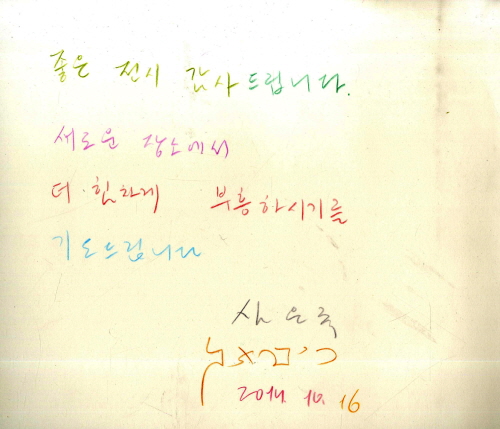 좋은 전시 감사드립니다.
새로운 장소에서
더 힘차게 부흥하시기를
기도드립니다
2014. 10. 16